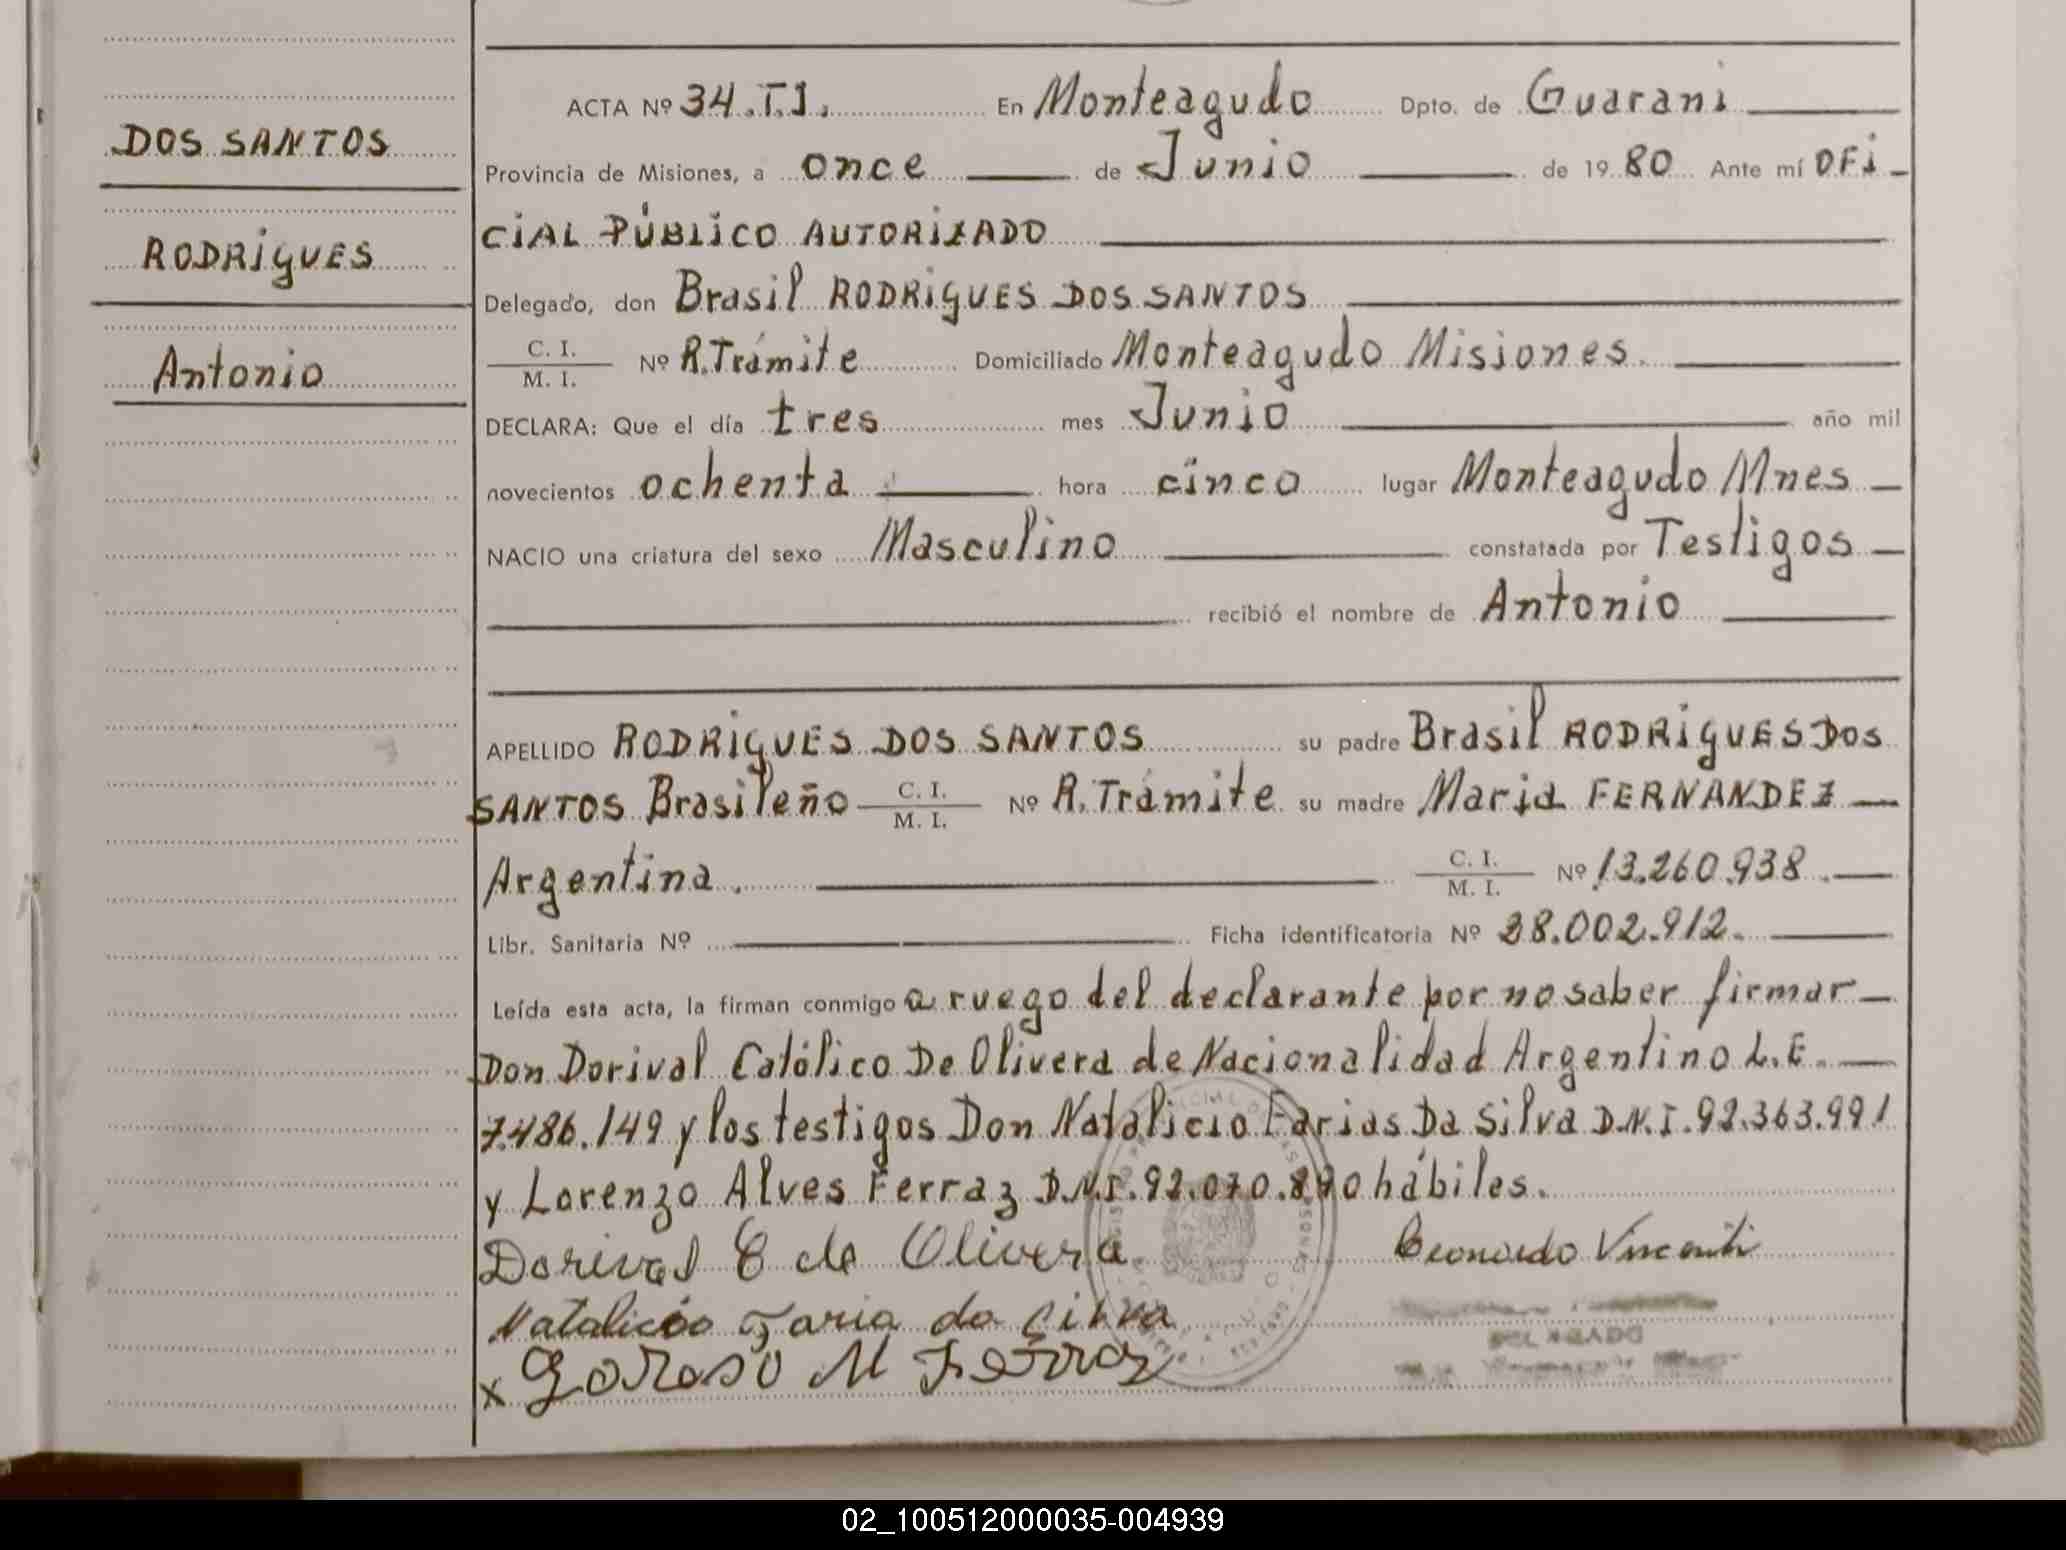 DOS SANTOS
RODRIGUES
Antonio
ACTA Nº 34.T.I. En Monteagudo Dpto. de Guarani
Provincia de Misiones, a once de Junio de 1980 Ante mí OFi
CiAL PÚBLiCO AUTORiZADO
Delegado, don Brasil RODRiGUES DOS SANTOS
C. I.
M. I.
Nº R.Trámite Domiciliado Monteagudo Misiones.
DECLARA: Que el día tres mes Junio año mil
novecientos ochenta hora cinco lugar Monteagudo Mnes
NACIO una criatura del sexo Masculino constatada por Testigos
recibió el nombre de Antonio
APELLIDO RODRiGUES DOS SANTOS su padre Brasil RODRiGUES DOS
SANTOS Brasileño C. I. M. I. Nº R.Trámite su madre Maria FERNANDEZ
Argentina. C. I. M. I. Nº 13.260.938.
Libr. Sanitaria Nº Ficha identificatoria Nº 28.002.912.
Leída esta acta, la firman conmigo a ruego del declarante por no saber firmar
Don Dorival Católico De Olivera de Nacionalidad Argentino L.E.
7.486.149 y los testigos Don Natalicio Farias Da Silva D.N.I. 92.363.991
y Lorenzo Alves Ferraz D.N.I. 92.070. hábiles.
Dorival C de Olivera
Natalicio Faria da Silva
x M Ferraz
DELEGADO
02_100512000035-004939